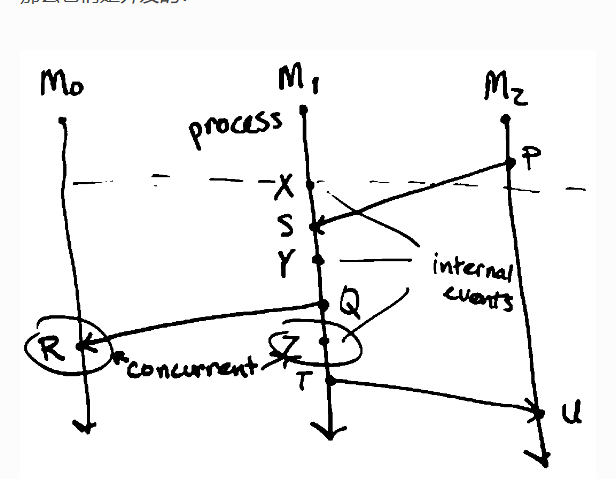 M₀
M₁
M₂
process
P
X
S
Y
internal
events
Q
R
Z
concurrent
T
U